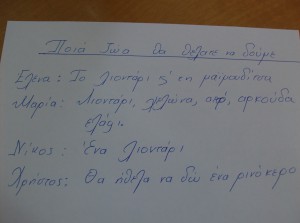 Ποιά ζώα θα θέλατε να δούμε
Ελένα: Το λιοντάρι ς' τη μαϊμουδίτσα
Μαρία: Λιοντάρι, χελώνα, αρκούδα
ελάφι.
Νίκος: Ένα λιοντάρι
Χρήστος: Θα ήθελα να δω ένα ρινόκερο